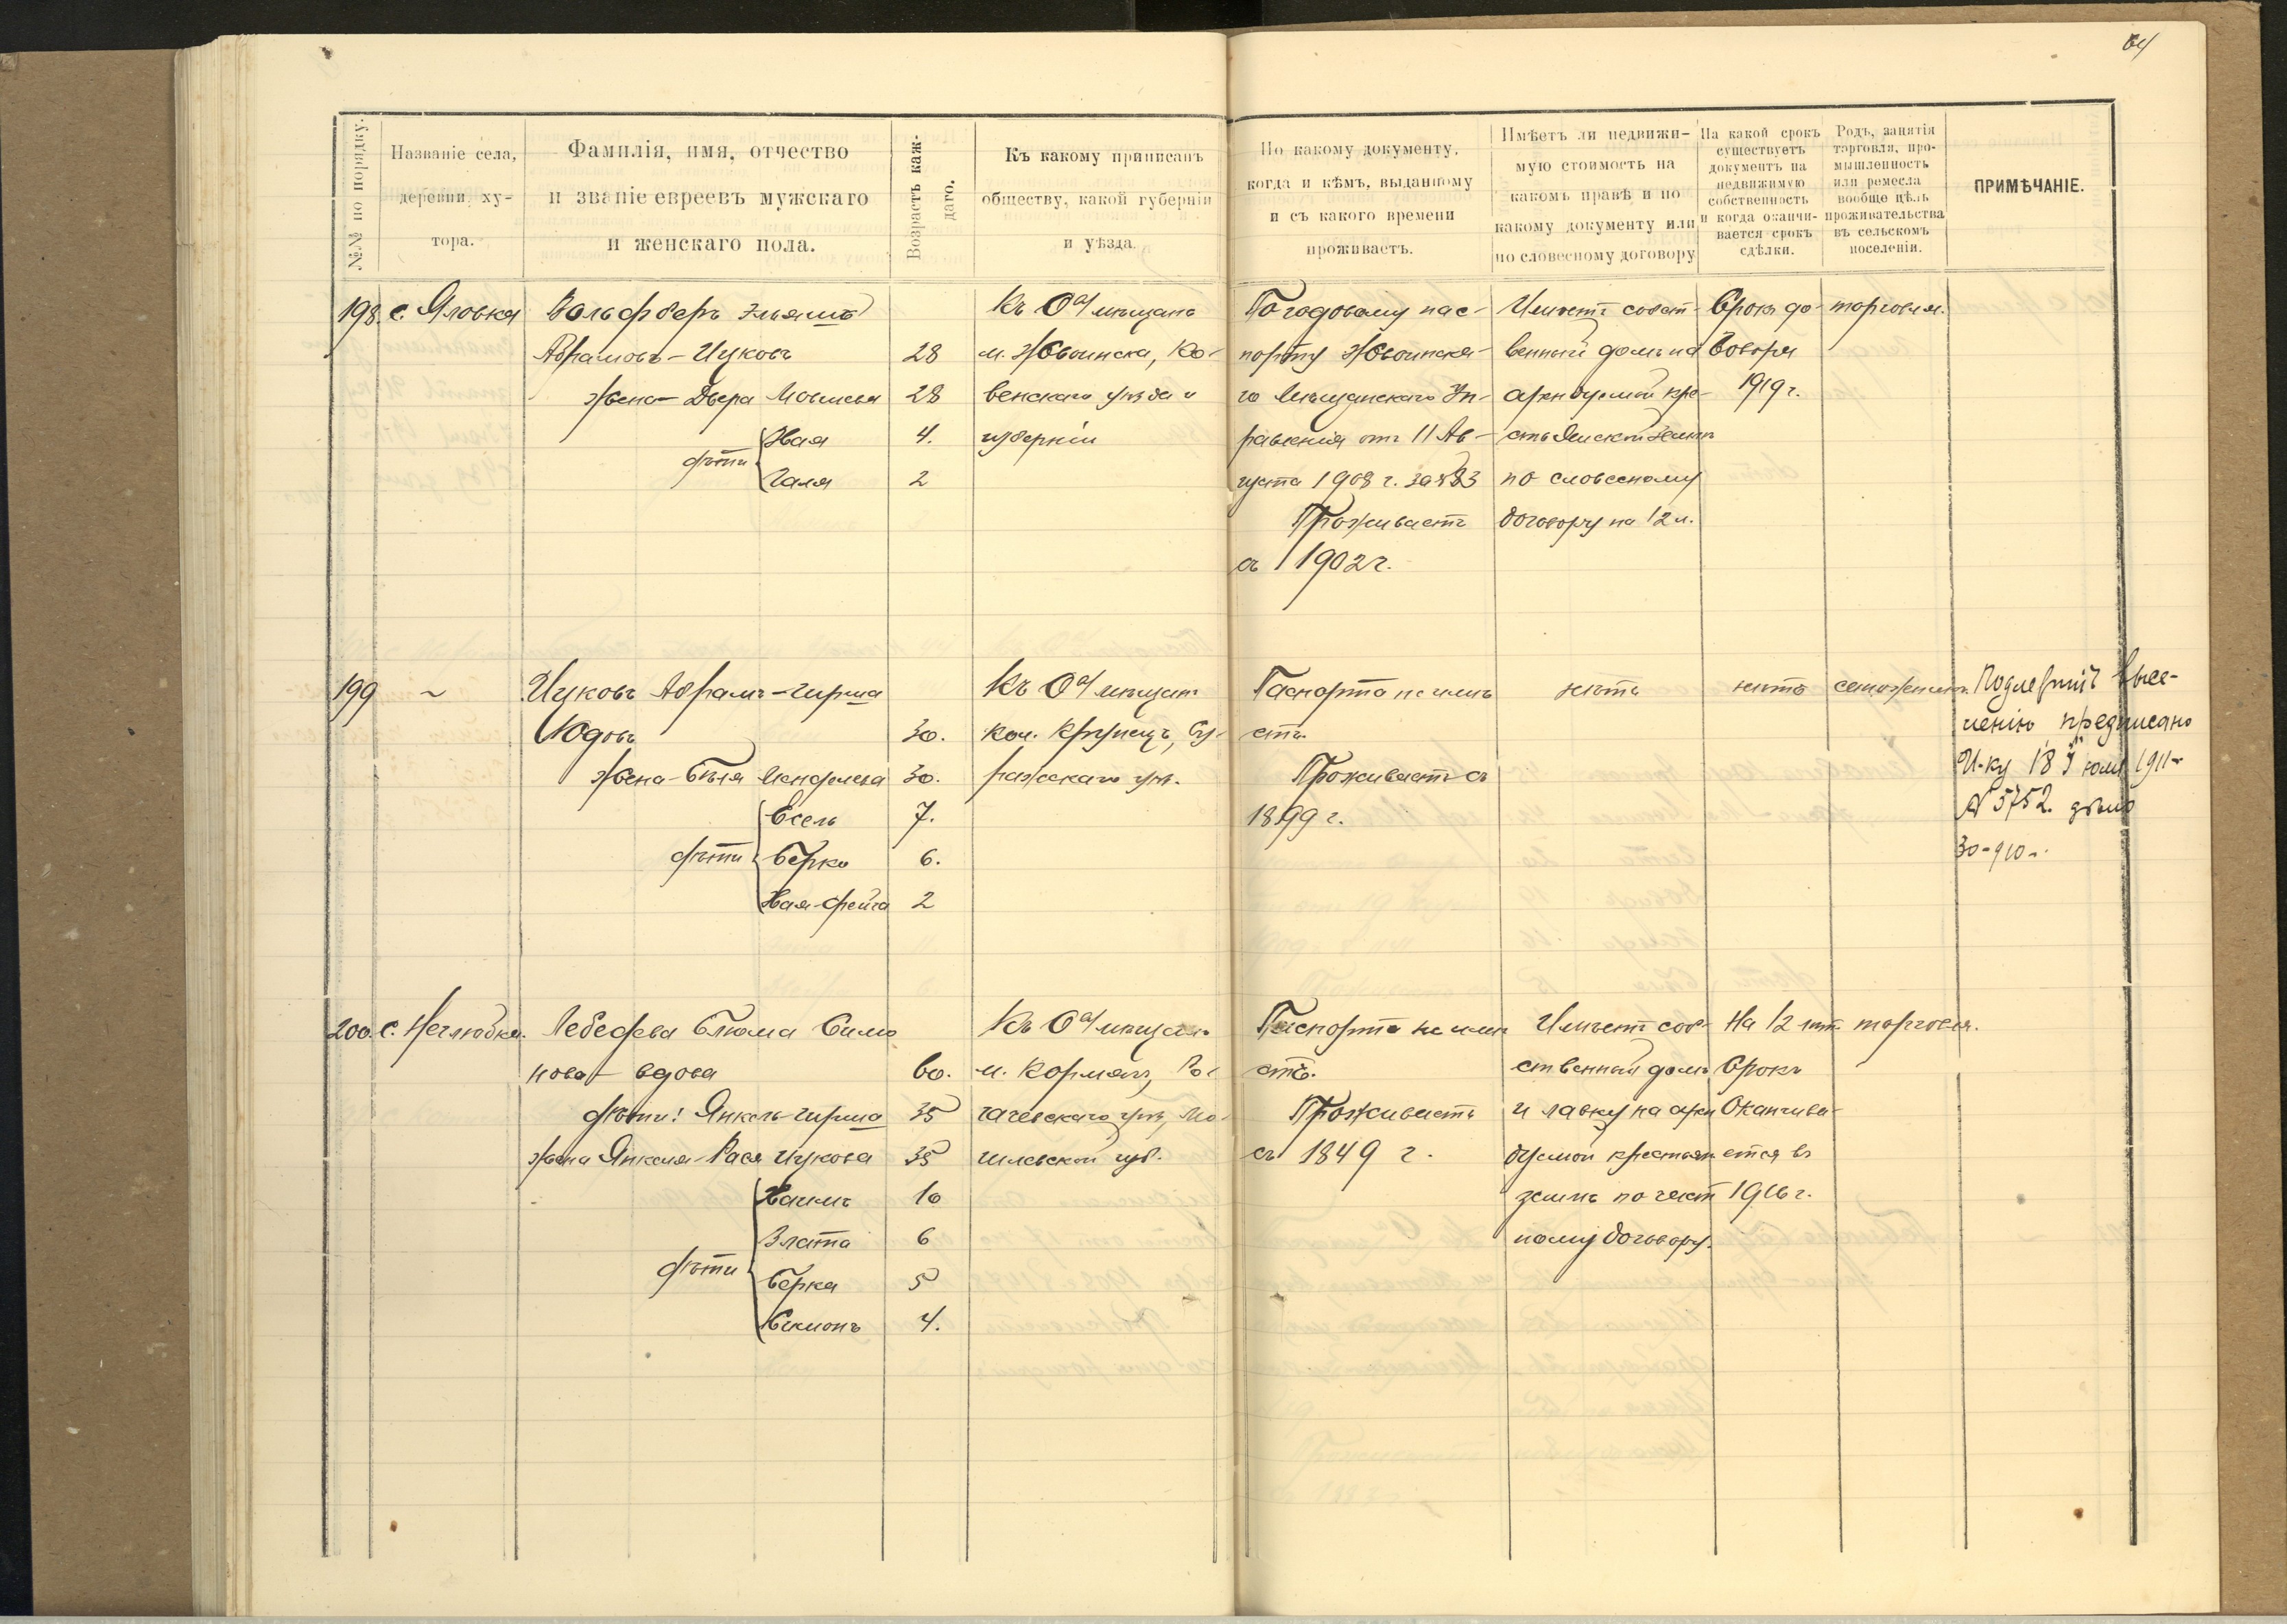 64
№№ по порядку.
Названіе села,
деревни, ху-
тора.
Фамилія, имя, отчество
и званіе евреевъ мужскаго
и женскаго пола.
Возрастъ каж-
даго.
Къ какому приписанъ
обществу, какой губерніи
и уѣзда.
По какому документу,
когда и кѣмъ, выданному
и съ какого времени
проживаетъ.
Имѣетъ ли недвижи-
мую стоимость на
какомъ правѣ и по
какому документу или
по словесному договору
На какой срокъ
существуетъ
документъ на
недвижимую
собственность
и когда оканчи-
вается срокъ
сдѣлки.
Родъ, занятія
торговля, про-
мышленность
или ремесла
вообще цѣль
проживательства
въ сельскомъ
поселеніи.
ПРИМѢЧАНІЕ.
198. с. Яловка
Вольфберъ Эльяшъ
Абрамовъ-Цуковъ 28
жена-Двера Мовшева 28
дѣти
Хая 4.
Галя 2
Къ О-ву мѣщанъ
м. Жвоинска, Ко-
венскаго уѣзда и
губерніи
По годовому пас-
порту Жвоинска-
го Мѣщанскаго Уп-
равленія отъ 11 Ав-
густа 1908 г. за №83
Проживаетъ
съ 1902 г.
Имѣетъ собст-
венный домъ на
арендуемой кре-
стьянской землѣ
по словесному
договору на 12 л.
Срокъ до-
говора
1919 г.
торговля.
199 ~
Цуковъ Абрамъ-Гирша
Юдовъ 30.
жена-Бѣля Мендлева 30.
дѣти
Есель 7.
Берко 6.
Хая-Фейга 2
Къ О-ву мѣщанъ
кол. Крупецъ, Су-
ражскаго уѣз.
Паспорта не имѣ-
етъ.
Проживаетъ съ
1899 г.
нѣтъ
нѣтъ
Подлежитъ высе-
ленію, предписано
И-ку 18 юля 1911 г.
№ 5752. дѣло
30-910 г.
200. с. Неглюбка.
Лебедева Блюма Симо
нова - вдова 60.
дѣти: Янкель-Гирша 35
жена Янкеля-Рася Цукова 35
дѣти
Хаимъ 10
Злата 6
Берка 5
Симонъ 4.
Къ О-ву мѣщанъ
м. Корма, Ро-
гачевскаго уѣз, Мо-
гилевской губ.
Паспорта не имѣ
етъ.
Проживаетъ
съ 1849 г.
Имѣетъ соб-
ственный домъ
и лавку на арен
дуемой крестьян
землѣ по част
ному договору.
На 12 лѣтъ
Срокъ
Оканчива-
ется въ
1916 г.
торговля.